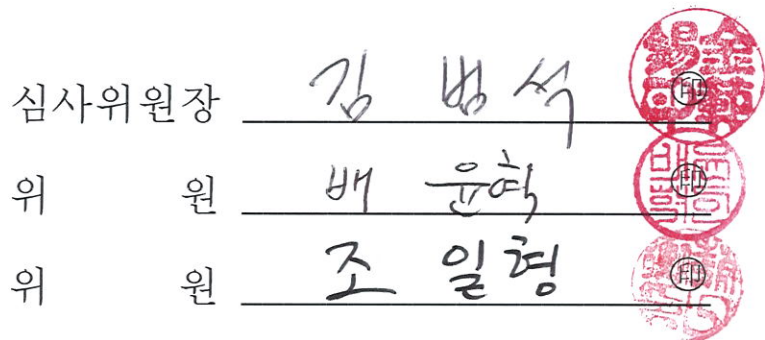 심사위원장 김 범 석 印
위 원 배 윤혁 印
위 원 조 일형 印